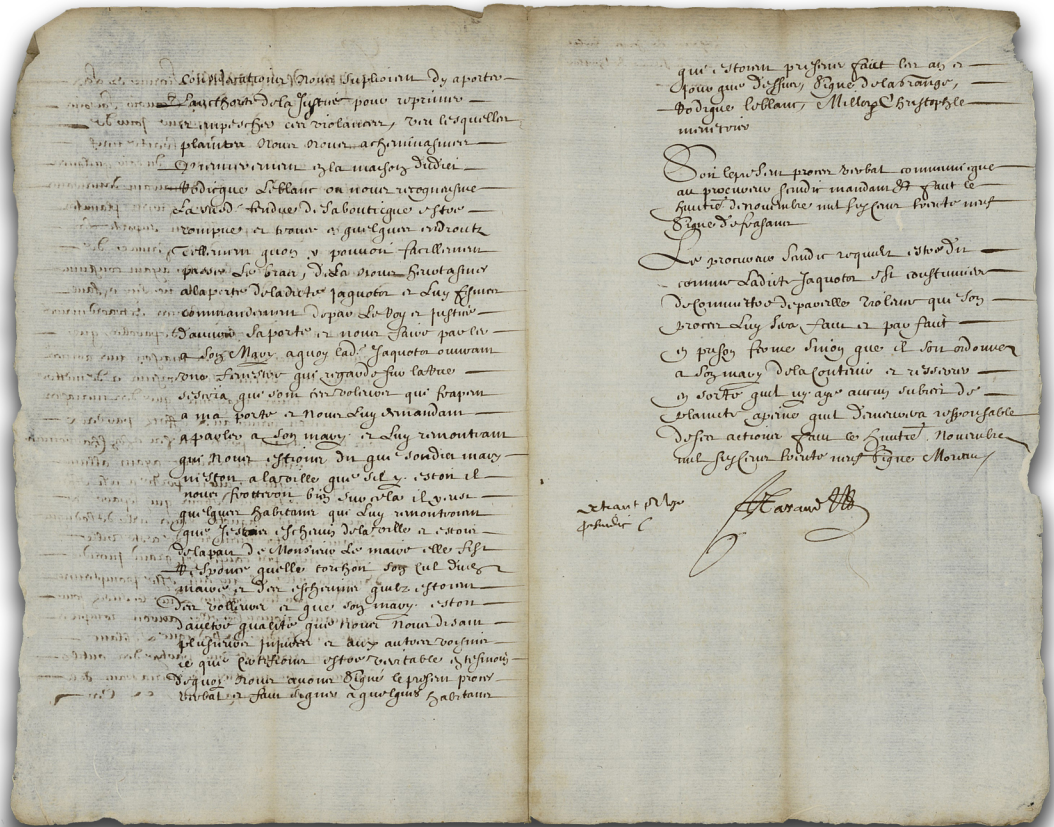 nous suplioient dy aporter
Laucthorite de la Justice pour reprimer
et empescher ces violances, veu lesquelles
plaintes nous nous acheminasmes
en la maison dudict
Rodicque Leblanc ou nous recogneusme
La vitre tendue de sa bouticque estre
rompue et trouee en quelques endroictz
Tellement quon y pouvoit facillement
passer Le bras, de La nous heurtasmes
a la porte de ladicte Jaquotot et Luy fismes
commandement de par Le Roy et justice
douvrir sa porte et nous faire parler
a son Mary, a quoy lad. Jaquotot ouvrant
une fenestre qui regarde sur la rue
sescria que sont ces voleurs qui frapent
a ma porte et nous Luy demandant
a parler a son mary et Luy remontrant
que nous estions du que sondict mary
nestoit a la ville que sil y estoit il
nous frotteroit bien sur cela il y eust
quelques habitans qui Luy remontrerent
que Jestois eschevin de la ville et estois
de la part de Monsieur Le maire elle fist
Responce quelle torchoit son cul dudict
maire et des eschevins quilz estoient
des volleurs et que son mary estoit
daultre qualité que nous nous disant
plusieurs injures et aux autres voisins
ce que certifions estre veritable en tesmoin
de quoy nous avons signé le present proces
verbal et faict signer a quelques habitans
qui estoient presens faict les an et
jour que dessus, Signé de la Grange,
Rodigue Leblanc, Millot Christophle
menetrier
Soit le present proces verbal communicqué
au procureur scindic mandant et faict le
huictie de novembre mil six cens trente neuf
Signé
Le procureur scindic requiert estre dit
comme Ladicte Jaquotot est coustumiere
de commettre de pareille violance que son
proces Luy sera faict et parfaict
en prison ferme sinon que il soit ordonné
a son mary de la contenir et resserrer
en sorte quil ny aye aucun subiect de
plaincte a peine quil demeurera responsable
de ses actions faict le huictie Novembre
mil six cens trente neuf Signé Moreau